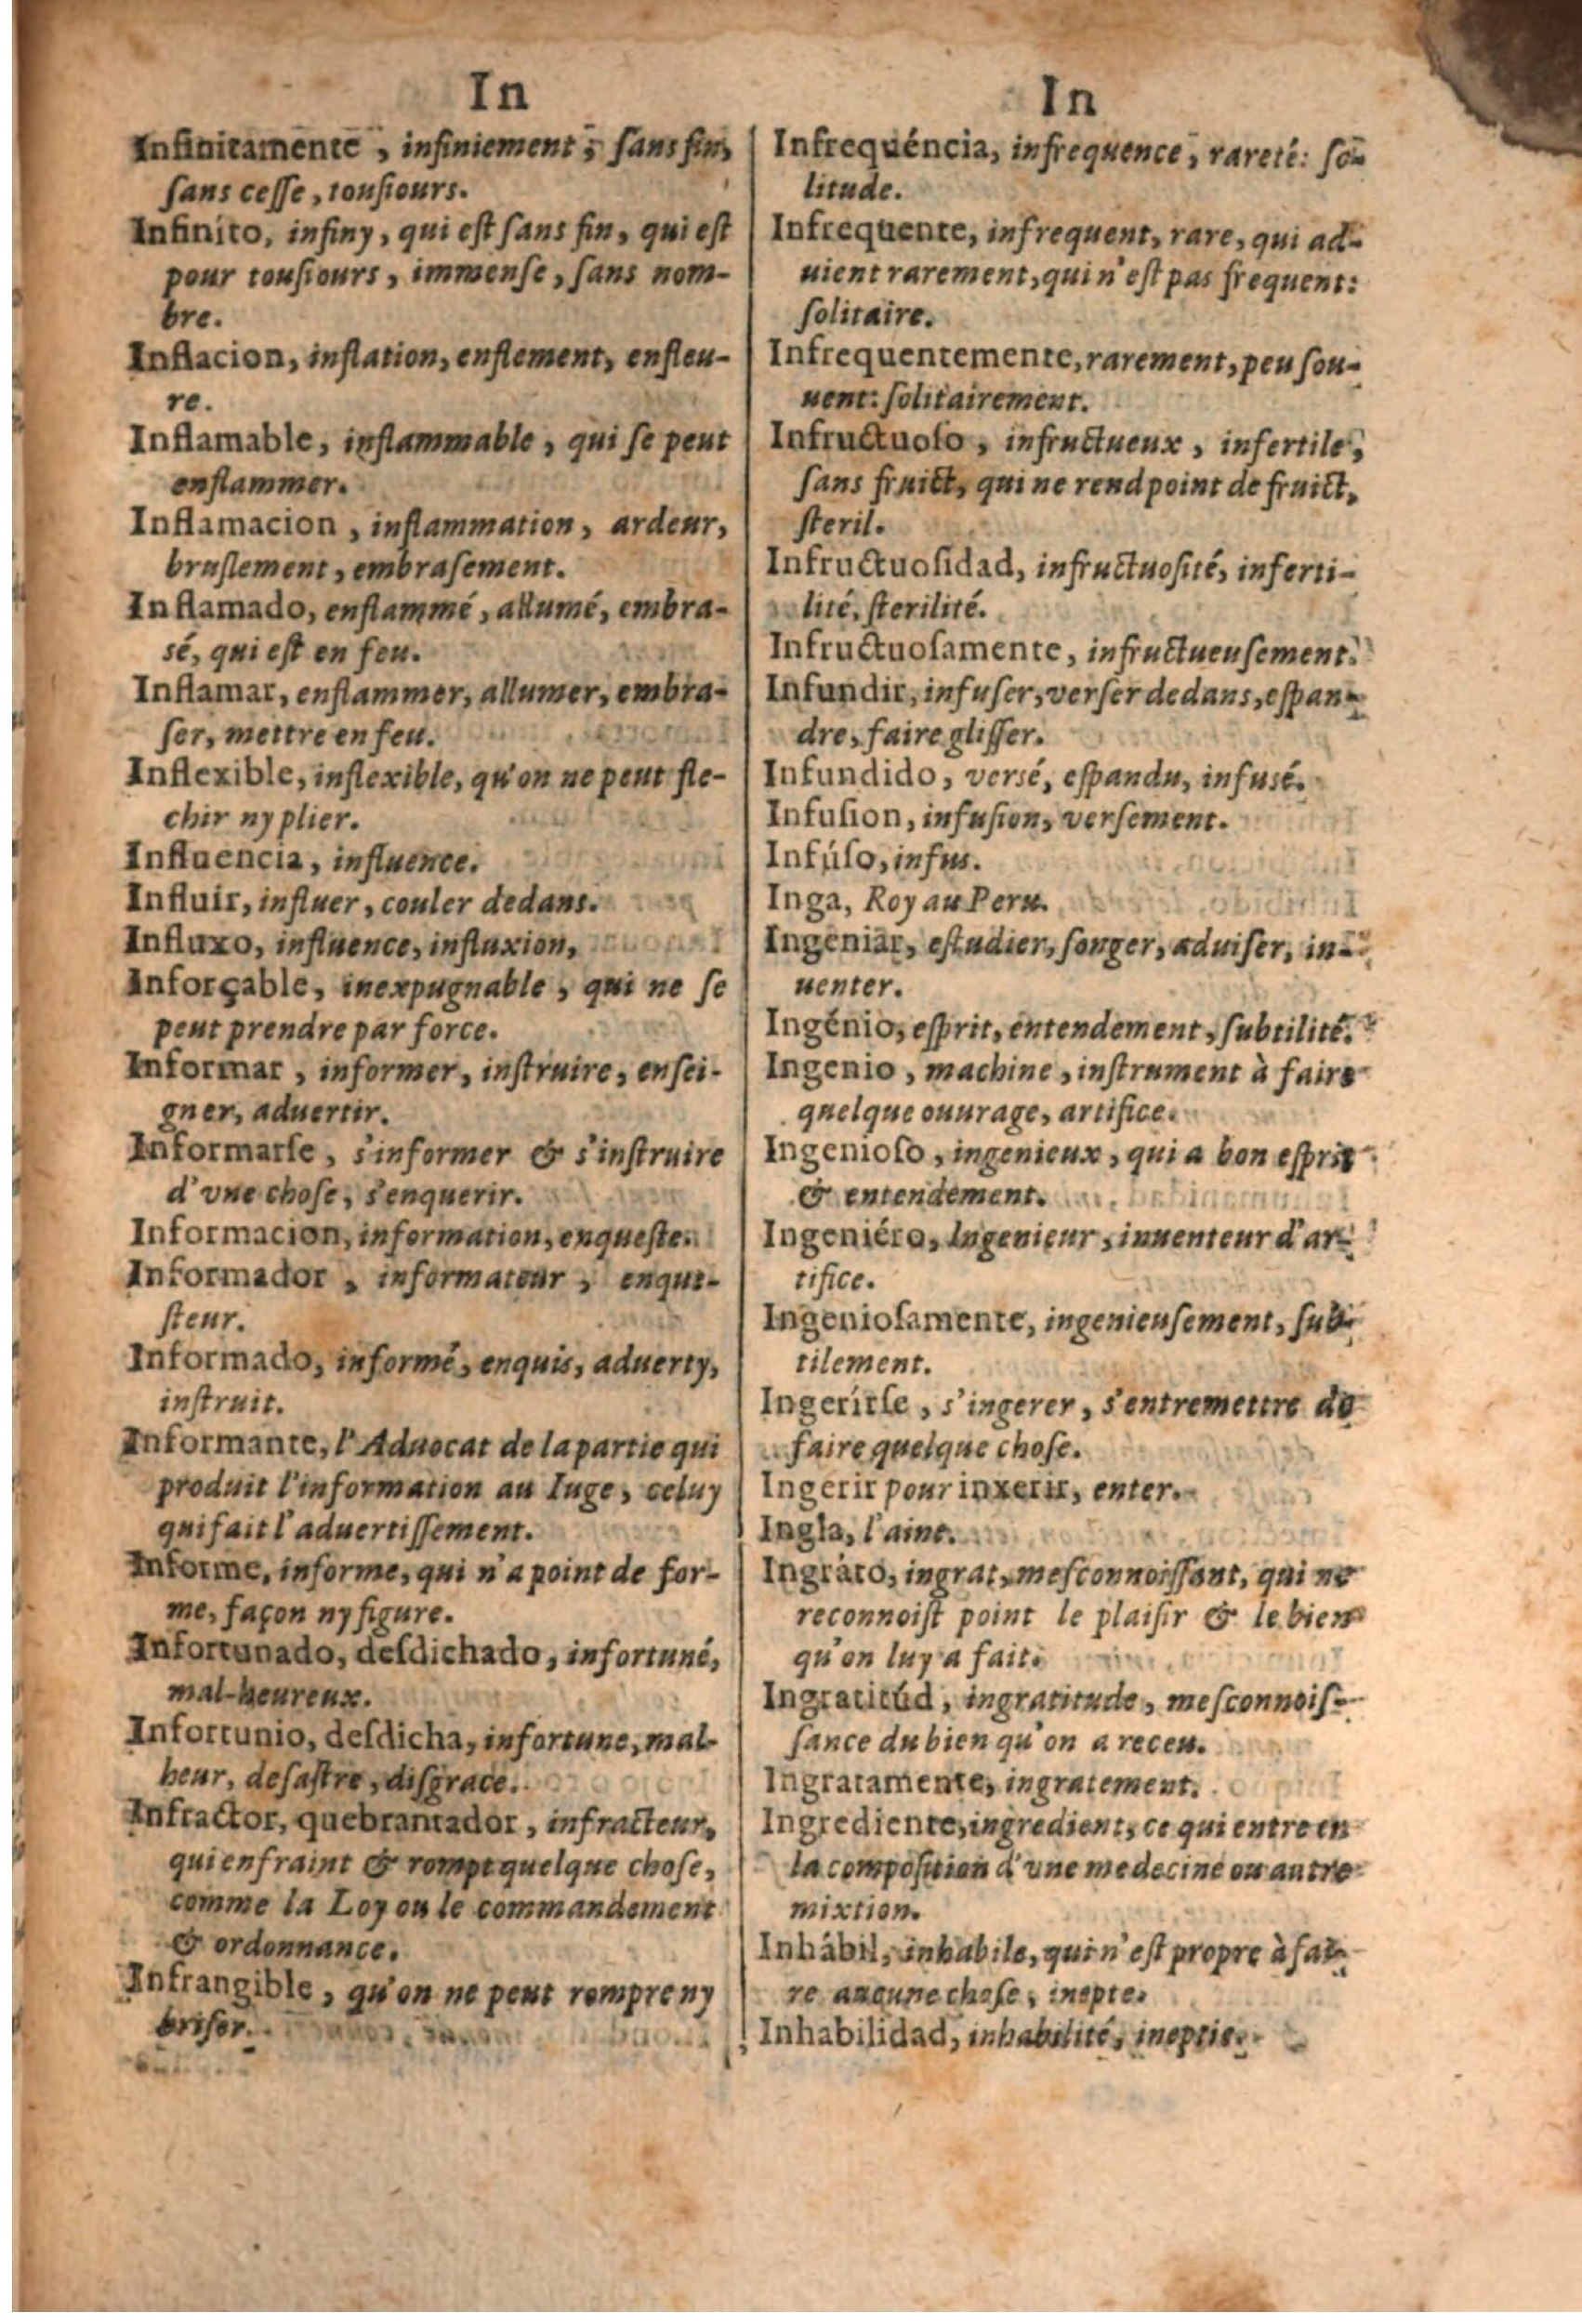 In
Infinitamente, infiniement, ſans fin,
ſans ceſſe, touſiours.
Infinito, infiny, qui eſt ſans fin, qui eſt
pour touſiours, immenſe, ſans nom-
bre.
Inflacion, inflation, enflement, enfleu-
re.
Inflamable, inflammable, qui ſe peut
enflammer.
Inflamacion, inflammation, ardeur,
bruſlement, embraſement.
Inflamado, enflammé, allumé, embra-
sé, qui eſt en feu.
Inflamar, enflammer, allumer, embra-
ſer, mettre en feu.
Inflexible, inflexible, qu'on ne peut fle-
chir ny plier.
Influencia, influence.
Influir, influer, couler dedans.
Influxo, influence, influxion,
Inforçable, inexpugnable, qui ne ſe
peut prendre par force.
Informar, informer, inſtruire, enſei-
gner, aduertir.
Informarſe, s'informer & s'inſtruire
d'vne choſe, s'enquerir.
Informacion, information, enqueſte.
Informador, informateur, enque-
ſteur.
Informado, informé, enquis, aduerty,
inſtruit.
Informante, l'Aduocat de la partie qui
produit l'information au Iuge, celuy
qui fait l'aduertiſſement.
Informe, informe, qui n'a point de for-
me, façon ny figure.
Infortunado, deſdichado, infortuné,
mal-heureux.
Infortunio, deſdicha, infortune, mal-
heur, deſaſtre, diſgrace.
Infractor, quebrantador, infracteur,
qui enfraint & rompt quelque choſe,
comme la Loy ou le commandement
& ordonnance.
Infrangible, qu'on ne peut rompre ny
briſer.
In
Infrequéncia, infrequence, rareté: ſo-
litude.
Infrequente, infrequent, rare, qui ad-
uient rarement, qui n'eſt pas frequent:
ſolitaire.
Infrequentemente, rarement, peu ſou-
uent: ſolitairement.
Infructuoſo, infructueux, infertile,
ſans fruict, qui ne rend point de fruict,
ſteril.
Infructuoſidad, infructuoſité, inferti-
lité, ſterilité.
Infructuoſamente, infructueuſement.
Infundir, infuſer, verſer dedans, eſpan-
dre, faire gliſſer.
Infundido, versé, eſpandu, infusé.
Infuſion, infuſion, verſement.
Infúſo, infus.
Inga, Roy au Peru.
Ingeniar, eſtudier, ſonger, aduiſer, in-
uenter.
Ingénio, eſprit, entendement, ſubtilité.
Ingenio, machine, inſtrument à faire
quelque ouurage, artifice.
Ingenioſo, ingenieux, qui a bon eſprit
& entendement.
Ingeniéro, Ingenieur, inuenteur d'ar-
tifice.
Ingenioſamente, ingenieuſement, ſub-
tilement.
Ingerírſe, s'ingerer, s'entremettre de
faire quelque choſe.
Ingerir pour inxerir, enter.
Ingla, l'aine.
Ingráto, ingrat, meſconnoiſſant, qui ne
reconnoiſt point le plaiſir & le bien
qu'on luy a fait.
Ingratitúd, ingratitude, meſconnoiſ-
ſance du bien qu'on a receu.
Ingratamente, ingratement.
Ingrediente, ingredient, ce qui entre en
la compoſition d'vne medecine ou autre
mixtion.
Inhábil, inhabile, qui n'eſt propre à fai-
re aucune choſe, inepte.
Inhabilidad, inhabilité, ineptie.